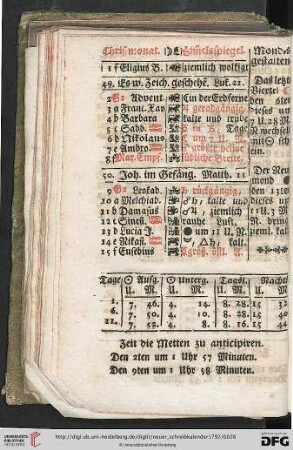 Christmonat. Himelsspiegel.
1 f Eligius B. ziemlich wolkigt
49. Es w. Zeich. geschehē. Luk. 21.
2 Advent in der Erdferne
3 a Franc. Xav. geradgängig,
4 b Barbara kalte und trübe
5 c Sabb. Tage
6 d Nikolaus um 7 U. M.
7 e Ambro. größte helio:
8 f Mar. Empf. südliche Breite.
50. Joh. im Gefäng. Matth. 11
9 Leokad. rückgängig,
10 a Melchiad. kalte und
11 b Damasus ziemlich
12 c Sines. rauhe Luft.
13 d Lucia J. um 11 U. M.
14 e Nikas. kalt.
15 f Eusebius größ. östl. A.
Monds-
gestalten
Das letzte
Viertel
den
dieses um
7 U. 28 M.
wechsel
mit sch
ein.
Der Neu
mond
den 13ten
dieses um
11 U. 3 M
N. bring
kalt.
Tage Aufg. Unterg. Tagsl. Nachtl
U. M. U. M. U. M. U. M.
1. 7. 46. 4. 14. 8. 28. 15 32
6. 7. 50. 4. 10. 8. 20. 15 40
11. 7. 52. 4. 8. 8. 16. 15 44
Zeit die Metten zu anticipiren.
Den 2ten um 1 Uhr 57 Minuten.
Den 9ten um 1 Uhr 58 Minuten.
http://digi.ub.uni-heidelberg.de/diglit/neuer_schreibkalender1792/0026
© Universitätsbibliothek Heidelberg
UNIVERSITÄTS-
BIBLIOTHEK
HEIDELBERG
gefördert durch die
DFG